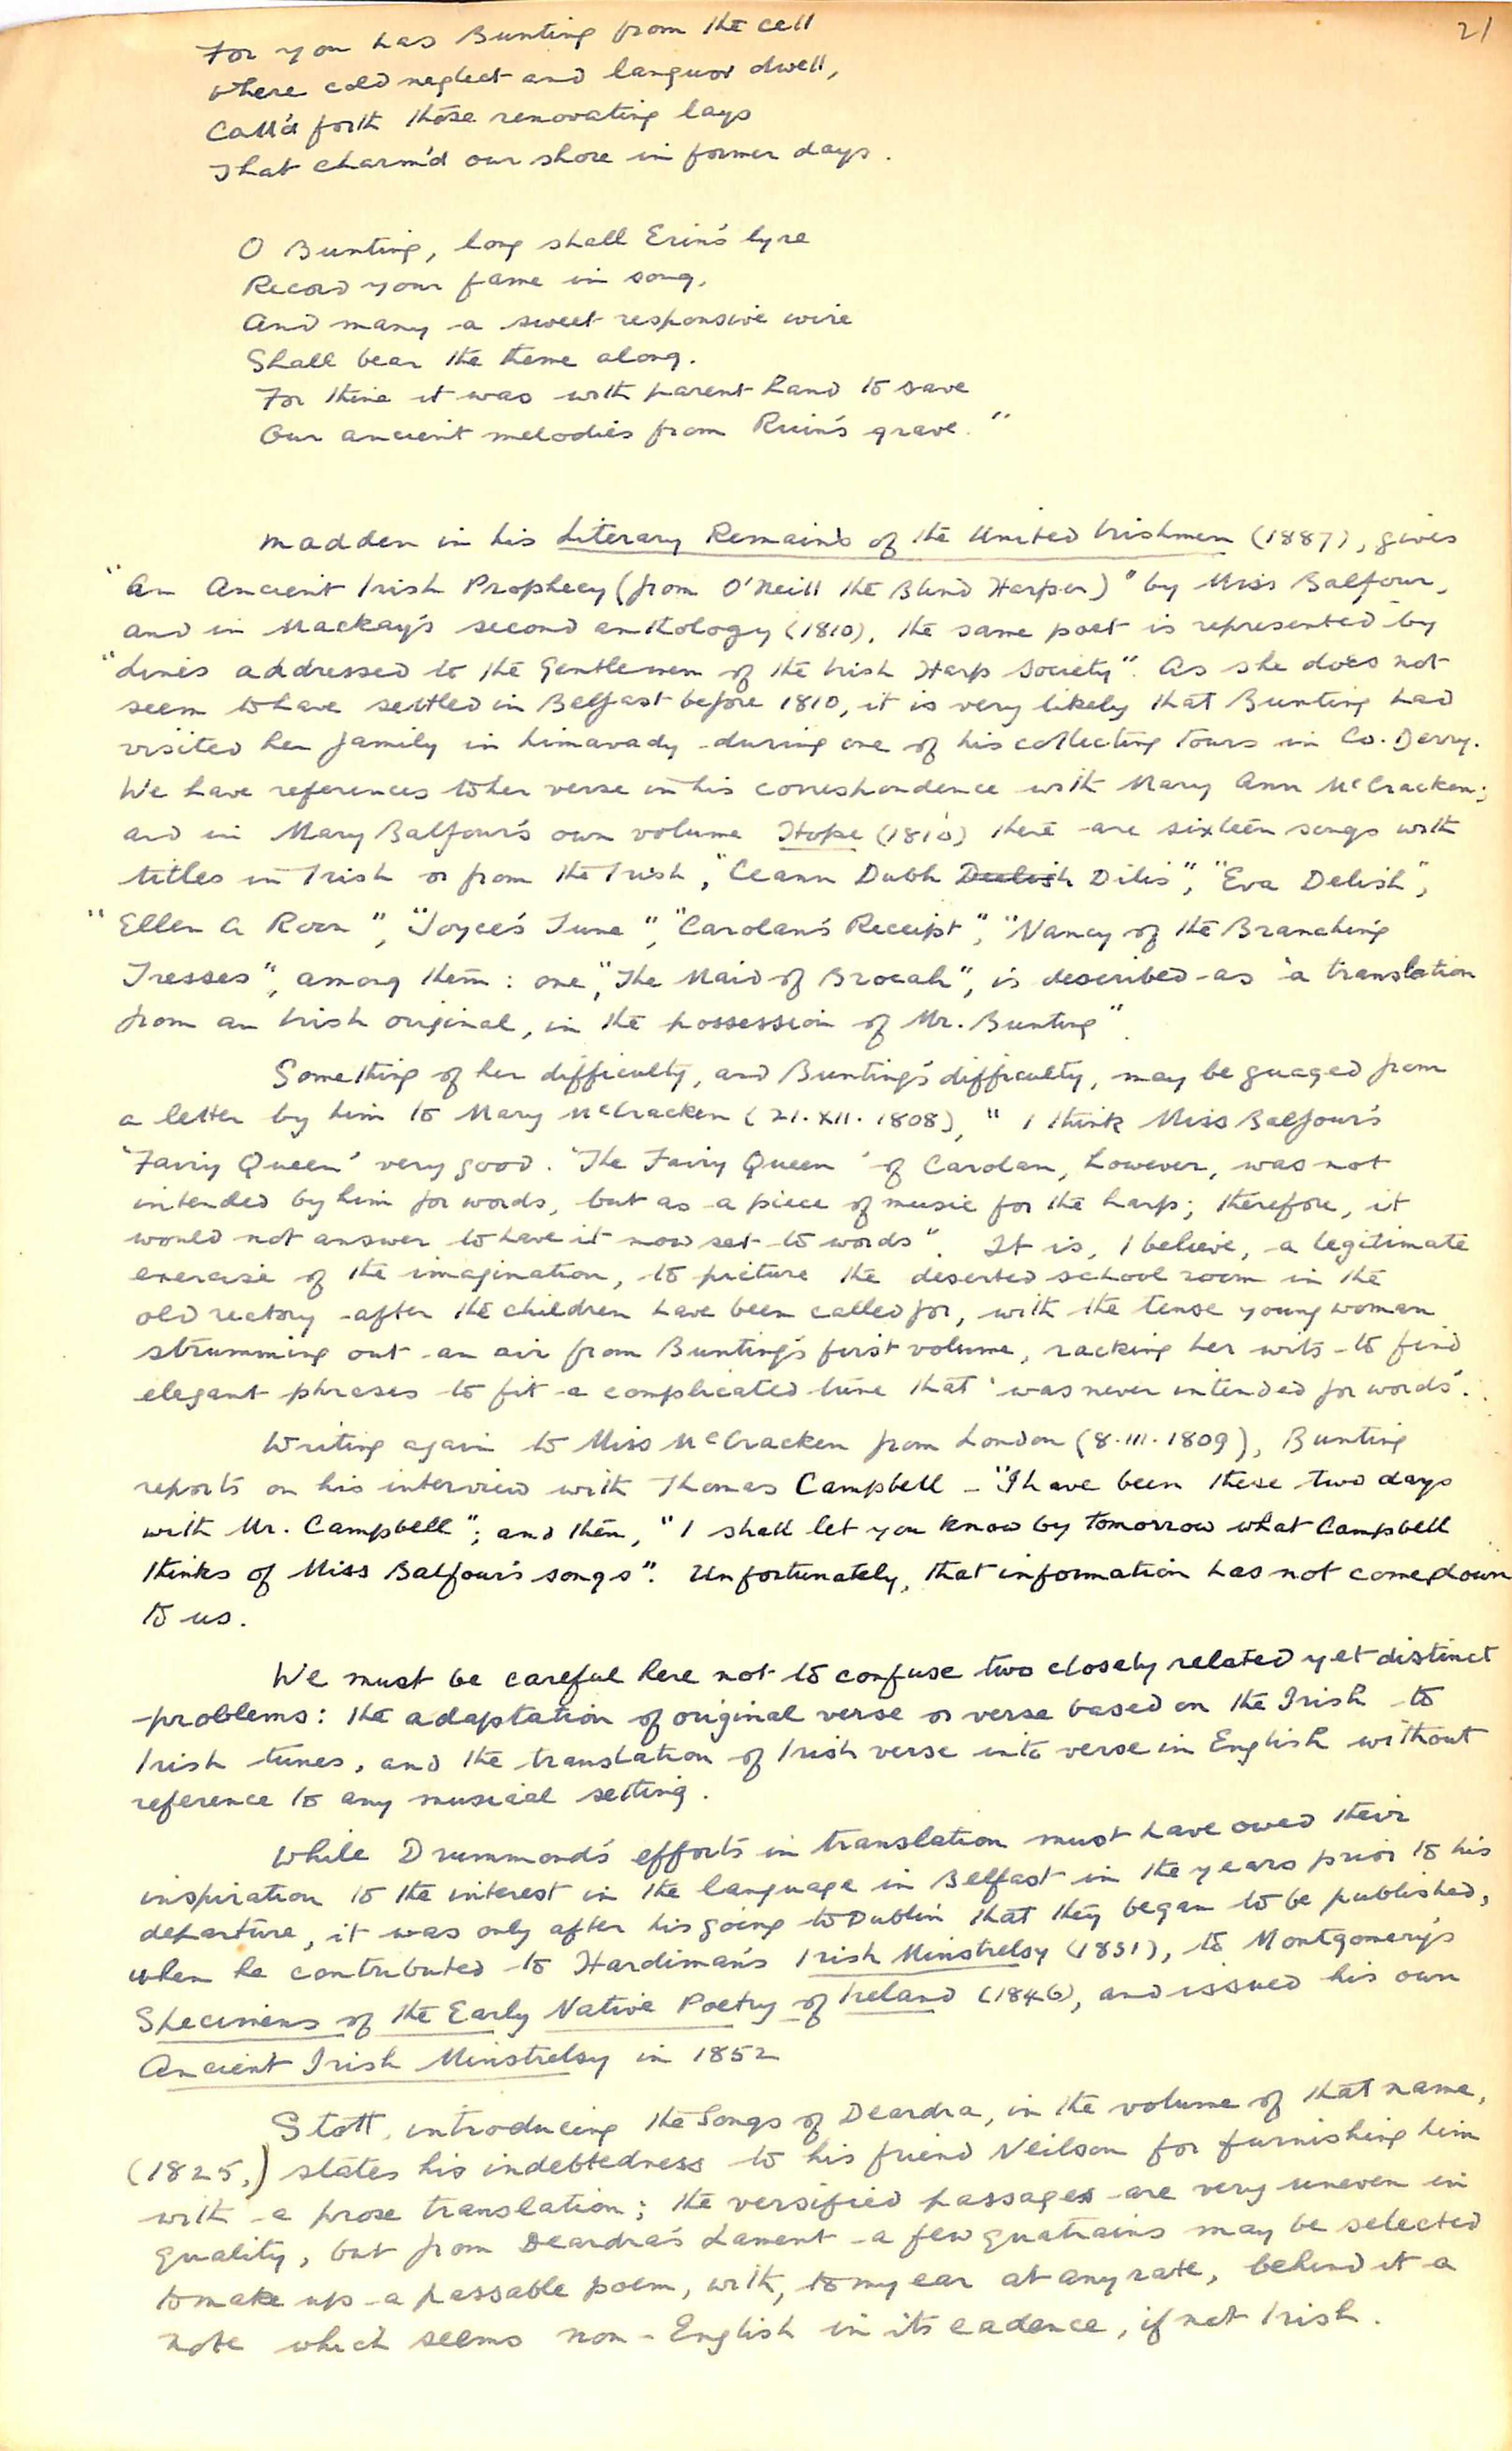 21
For you has Bunting from the cell
Where cold neglect and languor dwell,
Call'd forth those renovating lays
That charm'd our shore in former days.
O Bunting, long shall Erin's lyre
Record your fame in song,
And many a sweet responsive wire
Shall bear the theme along.
For thine it was with parent hand to save
Our ancient melodies from Ruin's grave."
Madden in his Literary Remains of the United Irishmen (1887), gives
"An Ancient Irish Prophecy (from O'Neill the Blind Harper)" by Miss Balfour,
and in Mackay's second anthology (1810), the same poet is represented by
"Lines addressed to the Gentlemen of the Irish Harp Society". As she does not
seem to have settled in Belfast before 1810, it is very likely that Bunting had
visited her family in Limavady during one of his collecting tours in Co. Derry.
We have references to her verse in his correspondence with Mary Ann McCracken;
and in Mary Balfour's own volume Hope (1810) there are sixteen songs with
titles in Irish or from the Irish, "Ceann Dubh Deelish Dilis", "Eva Delish",
"Ellen A Roon", "Joyce's Tune", "Carolan's Receipt", "Nancy of the Branching
Tresses", among them: one, "The Maid of Brocah", is described as 'a translation
from an Irish original, in the possession of Mr. Bunting".
Something of her difficulty, and Bunting's difficulty, may be guaged from
a letter by him to Mary McCracken (21.XII.1808), "I think Miss Balfour's
'Fairy Queen' very good. 'The Fairy Queen' of Carolan, however, was not
intended by him for words, but as a piece of music for the harp; therefore, it
would not answer to have it now set to words". It is, I believe, a legitimate
exercise of the imagination, to picture the deserted school room in the
old rectory after the children have been called for, with the tense young woman
strumming out an air from Bunting's first volume, racking her wits to find
elegant phrases to fit a complicated tune that 'was never intended for words'.
Writing again to Miss McCracken from London (8.III.1809), Bunting
reports on his interview with Thomas Campbell - "I have been these two days
with Mr. Campbell"; and then, "I shall let you know by tomorrow what Campbell
thinks of Miss Balfour's songs". Unfortunately, that information has not come down
to us.
We must be careful here not to confuse two closely related yet distinct
problems: the adaptation of original verse or verse based on the Irish to
Irish tunes, and the translation of Irish verse into verse in English without
reference to any musical setting.
While Drummond's efforts in translation must have owed their
inspiration to the interest in the language in Belfast in the years prior to his
departure, it was only after his going to Dublin that they began to be published,
when he contributed to Hardiman's Irish Minstrelsy (1831), to Montgomery's
Specimens of the Early Native Poetry of Ireland (1846), and issued his own
Ancient Irish Minstrelsy in 1852
Stott, introducing the Songs of Deardra, in the volume of that name,
(1825,) states his indebtedness to his friend Neilson for furnishing him
with a prose translation; the versified passages are very uneven in
quality, but from Deardra's Lament a few quatrains may be selected
to make up a passable poem, with, to my ear at any rate, behind it a
note which seems non-English in its cadence, if not Irish.